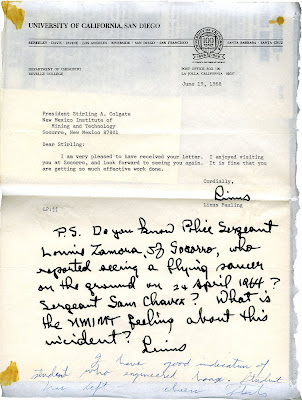 UNIVERSITY OF CALIFORNIA, SAN DIEGO
BERKELEY • DAVIS • IRVINE • LOS ANGELES • RIVERSIDE • SAN DIEGO • SAN FRANCISCO
SANTA BARBARA • SANTA CRUZ
DEPARTMENT OF CHEMISTRY
REVELLE COLLEGE
POST OFFICE BOX 109
LA JOLLA, CALIFORNIA 92037
June 1968
President Stirling A. Colgate
New Mexico Institute of
Mining and Technology
Socorro, New Mexico 87801
Dear Stirling:
I am very pleased to have received your letter. I enjoyed visiting
you at Socorro, and look forward to seeing you again. It is fine that you
are getting so much effective work done.
Cordially,
Linus
Linus Pauling
LP:
P.S. Do you know Police Sergeant
Lonnie Zamora, of Socorro, who
reported seeing a flying saucer
on the ground on 24 April 1964?
Sergeant Sam Chavez? What is
the NMIMT feeling about this
incident? Linus
I have good indication of
student who engineered hoax. Student
has left. Cheers